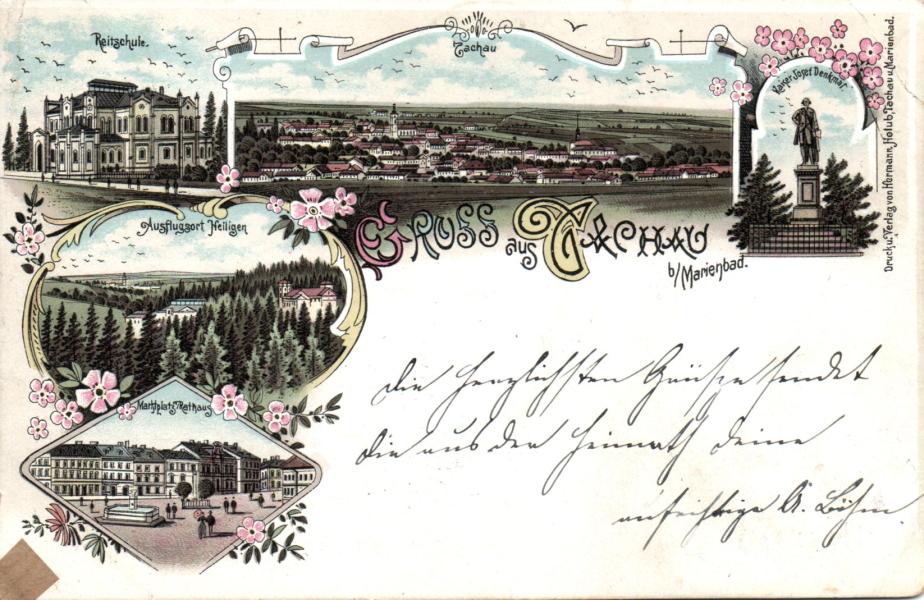 Reitschule.
Tachau
Kaiser Josef Denkmal.
Ausflugsort Heiligen
GRUSS aus TACHAU
b/Marienbad.
Marktplatz Rathaus
Druck u. Verlag von Hermann Holub, Tachau u. Marienbad.
die herzlichsten Grüße sendet
die aus der Heimath deine
aufrichtige A. Böhm